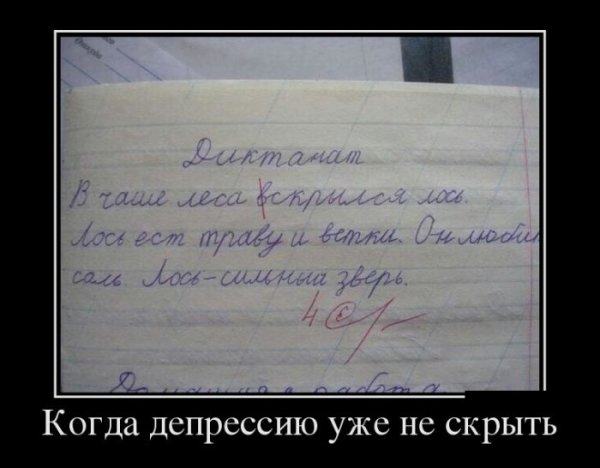 Диктанат
В чаше леса вскрылся лось.
Лось ест траву и ветки. Он любит
соль Лось-сильныи зверь.
4
Домашняя работа
Когда депрессию уже не скрыть